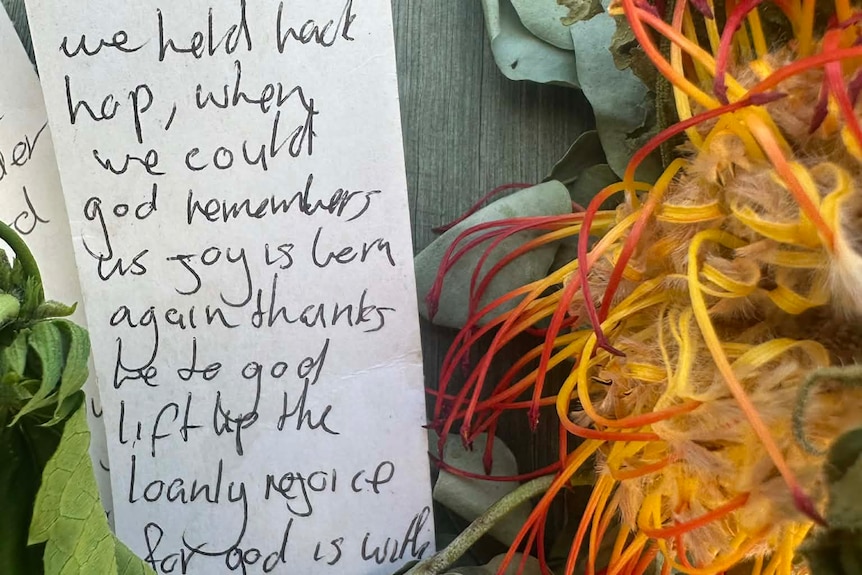 we held back
hop, when
we could
god remembers
us joy is bern
again thanks
be to god
lift up the
loanly rejoice
for god is with